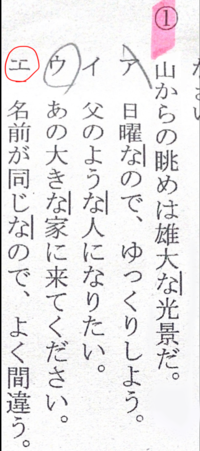 ① 山からの眺めは雄大な光景だ。
ア 日曜なので、ゆっくりしよう。
イ 父のような人になりたい。
ウ あの大きな家に来てください。
エ 名前が同じなので、よく間違う。